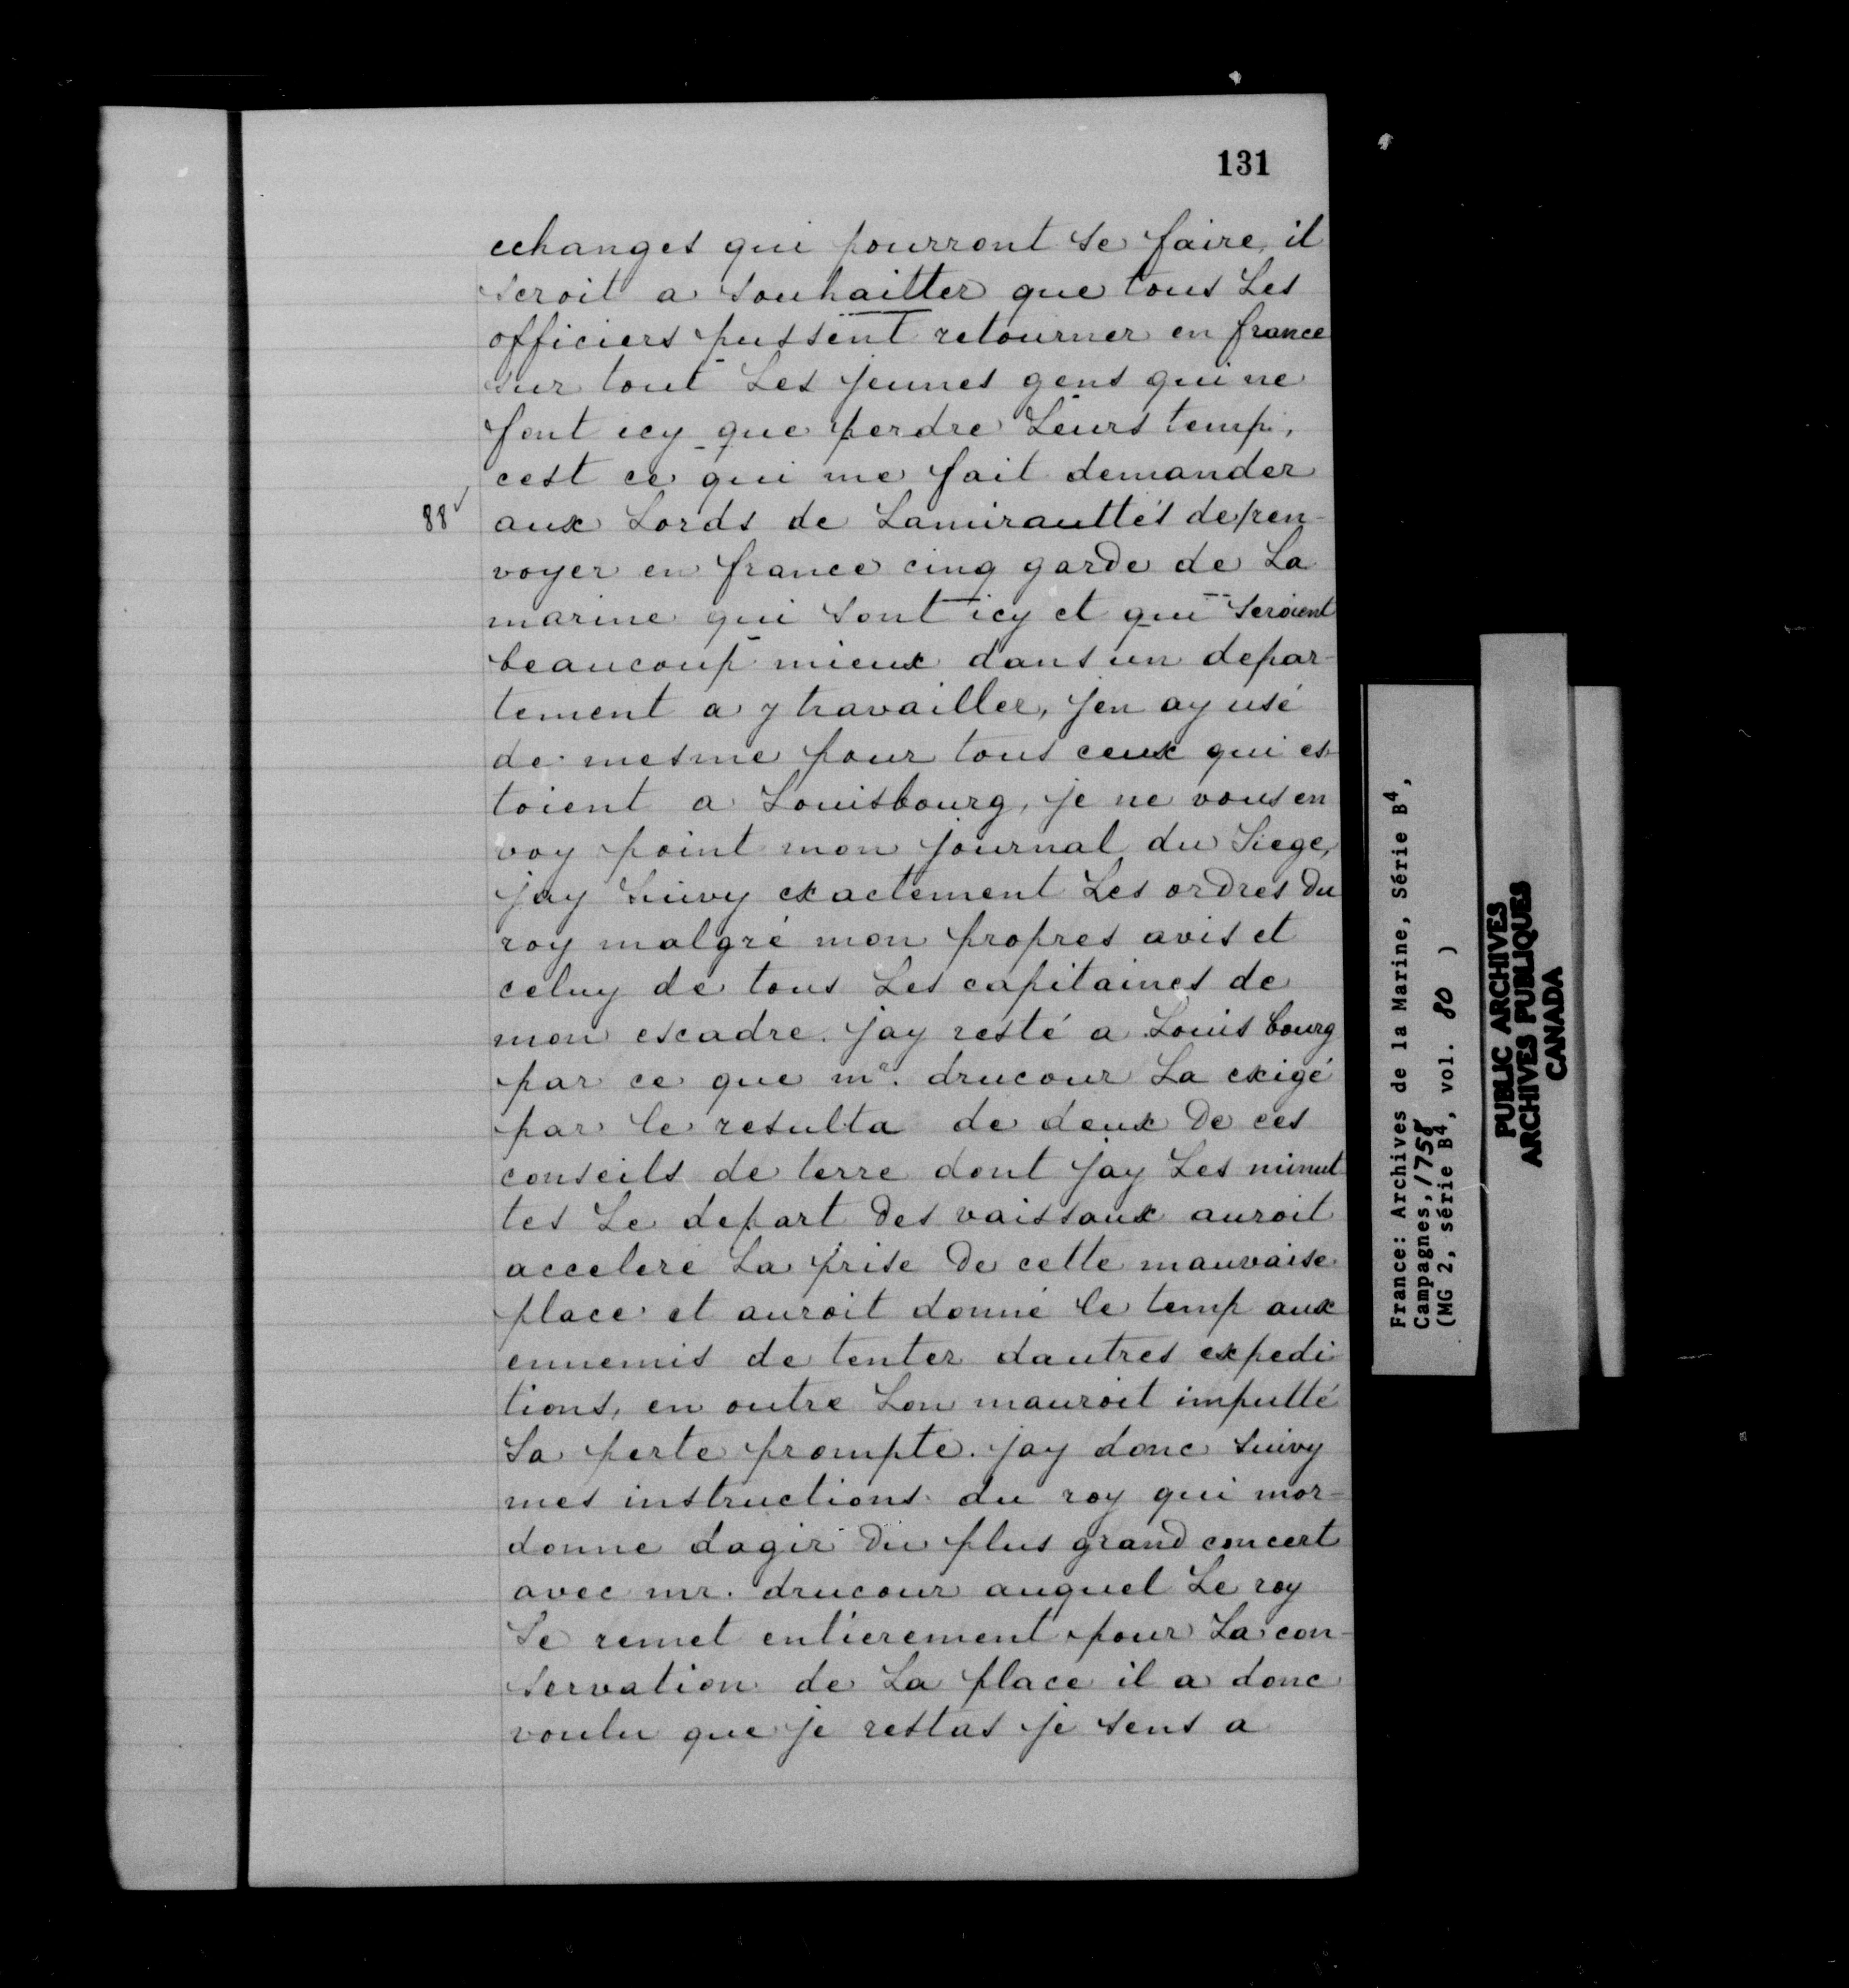 131
echanges qui pourront se faire, il
seroit a souhaitter que tous Les
officiers pussent retourner en france
sur tout Les jeunes gens qui ne
font icy que perdre Leurs temp,
cest ce qui me fait demander
88 aux Lords de Lamirauttés de/ren-
voyer en france cinq garde de La
marine qui sont icy et qui seroient
beaucoup mieux dans un depar-
tement a y travailler, jen ay usé
de mesme pour tous ceux qui es-
toient a Louisbourg, je ne vous en
voy point mon journal du Siege,
jay suivy exactement Les ordres du
roy malgré mon propres avis et
celuy de tous Les capitaines de
mon escadre. jay resté a Louis bourg
par ce que mr. drucour La exigé
par le resulta de deux de ces
conseils de terre dont jay Les minut
tes Le depart des vaissaux auroit
acceleré La prise de cette mauvaise
place et auroit donné le temp aux
ennemis de tenter dautres expedi
tions, en outre Lon mauroit imputté
Sa perte prompte. jay donc suivy
mes instructions du roy qui mor-
donne dagir du plus grand concert
avec mr. drucour auquel Le roy
Se remet entierement pour La con-
servation de La place il a donc
voulu que je restas je sens a
France: Archives de la Marine, Série B4,
Campagnes, 1758
(MG 2, série B4, vol. 80 )
PUBLIC ARCHIVES
ARCHIVES PUBLIQUES
CANADA